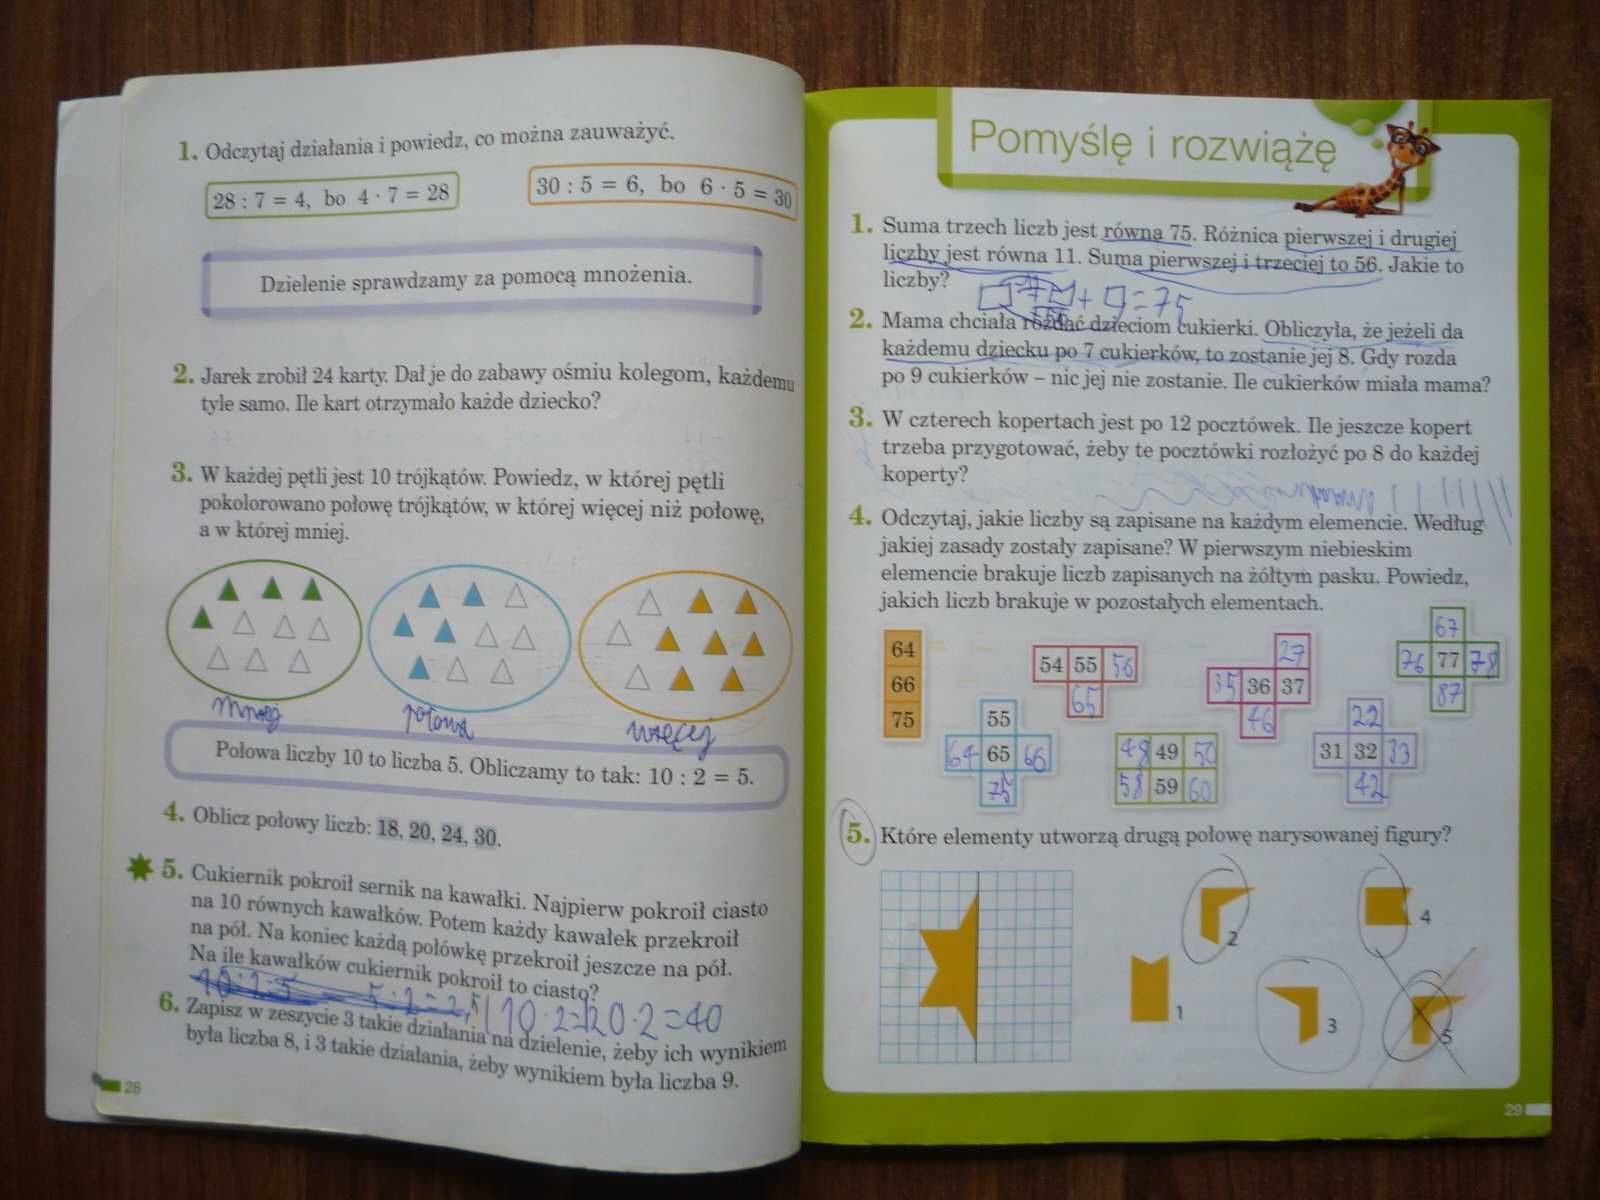 1. Odczytaj działania i powiedz, co można zauważyć.
28 : 7 = 4, bo 4 · 7 = 28
30 : 5 = 6, bo 6 · 5 = 30
Dzielenie sprawdzamy za pomocą mnożenia.
2. Jarek zrobił 24 karty. Dał je do zabawy ośmiu kolegom, każdemu
tyle samo. Ile kart otrzymało każde dziecko?
3. W każdej pętli jest 10 trójkątów. Powiedz, w której pętli
pokolorowano połowę trójkątów, w której więcej niż połowę,
a w której mniej.
mniej
połowa
więcej
Połowa liczby 10 to liczba 5. Obliczamy to tak: 10 : 2 = 5.
4. Oblicz połowy liczb: 18, 20, 24, 30.
5. Cukiernik pokroił sernik na kawałki. Najpierw pokroił ciasto
na 10 równych kawałków. Potem każdy kawałek przekroił
na pół. Na koniec każdą połówkę przekroił jeszcze na pół.
Na ile kawałków cukiernik pokroił to ciasto?
10 · 2 = 20 · 2 = 40
6. Zapisz w zeszycie 3 takie działania na dzielenie, żeby ich wynikiem
była liczba 8, i 3 takie działania, żeby wynikiem była liczba 9.
28
Pomyślę i rozwiążę
1. Suma trzech liczb jest równa 75. Różnica pierwszej i drugiej
liczby jest równa 11. Suma pierwszej i trzeciej to 56. Jakie to
liczby?
= 75
2. Mama chciała rozdać dzieciom cukierki. Obliczyła, że jeżeli da
każdemu dziecku po 7 cukierków, to zostanie jej 8. Gdy rozda
po 9 cukierków – nic jej nie zostanie. Ile cukierków miała mama?
3. W czterech kopertach jest po 12 pocztówek. Ile jeszcze kopert
trzeba przygotować, żeby te pocztówki rozłożyć po 8 do każdej
koperty?
4. Odczytaj, jakie liczby są zapisane na każdym elemencie. Według
jakiej zasady zostały zapisane? W pierwszym niebieskim
elemencie brakuje liczb zapisanych na żółtym pasku. Powiedz,
jakich liczb brakuje w pozostałych elementach.
64
66
75
55
64 65 66
75
54 55 56
65
48 49 50
58 59 60
27
35 36 37
46
22
31 32 33
42
67
76 77 78
87
5. Które elementy utworzą drugą połowę narysowanej figury?
1
2
3
4
5
29